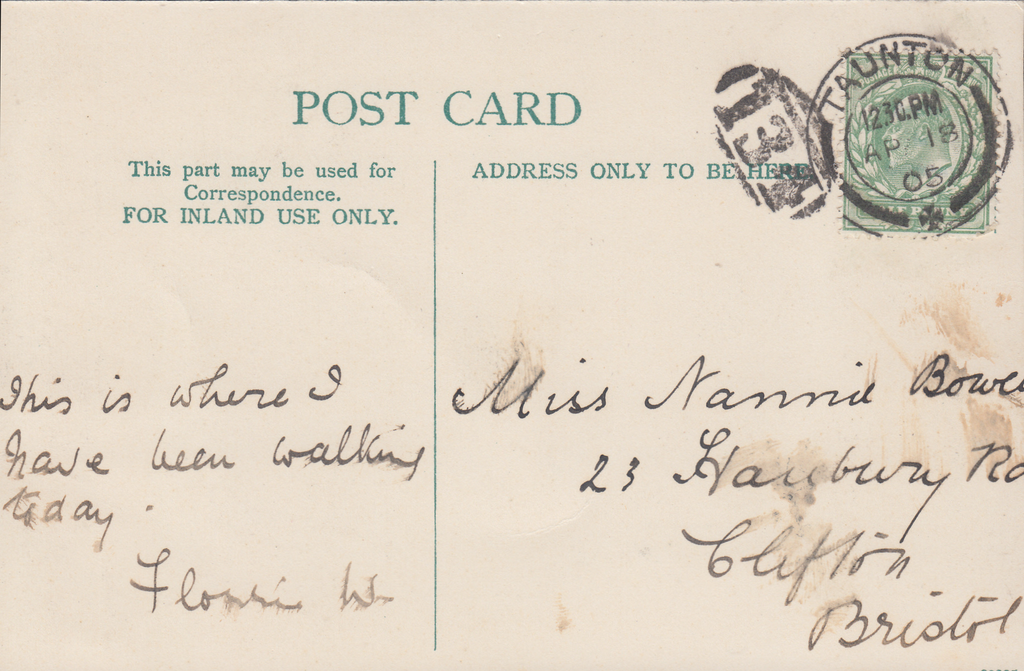 POST CARD
This part may be used for
Correspondence.
FOR INLAND USE ONLY.
ADDRESS ONLY TO BE HERE
TAUNTON
12 30.PM
AP 18
05
This is where I
have been walking
today.
W.
Miss Nannie
23 Hanbury Rd
Clifton
Bristol